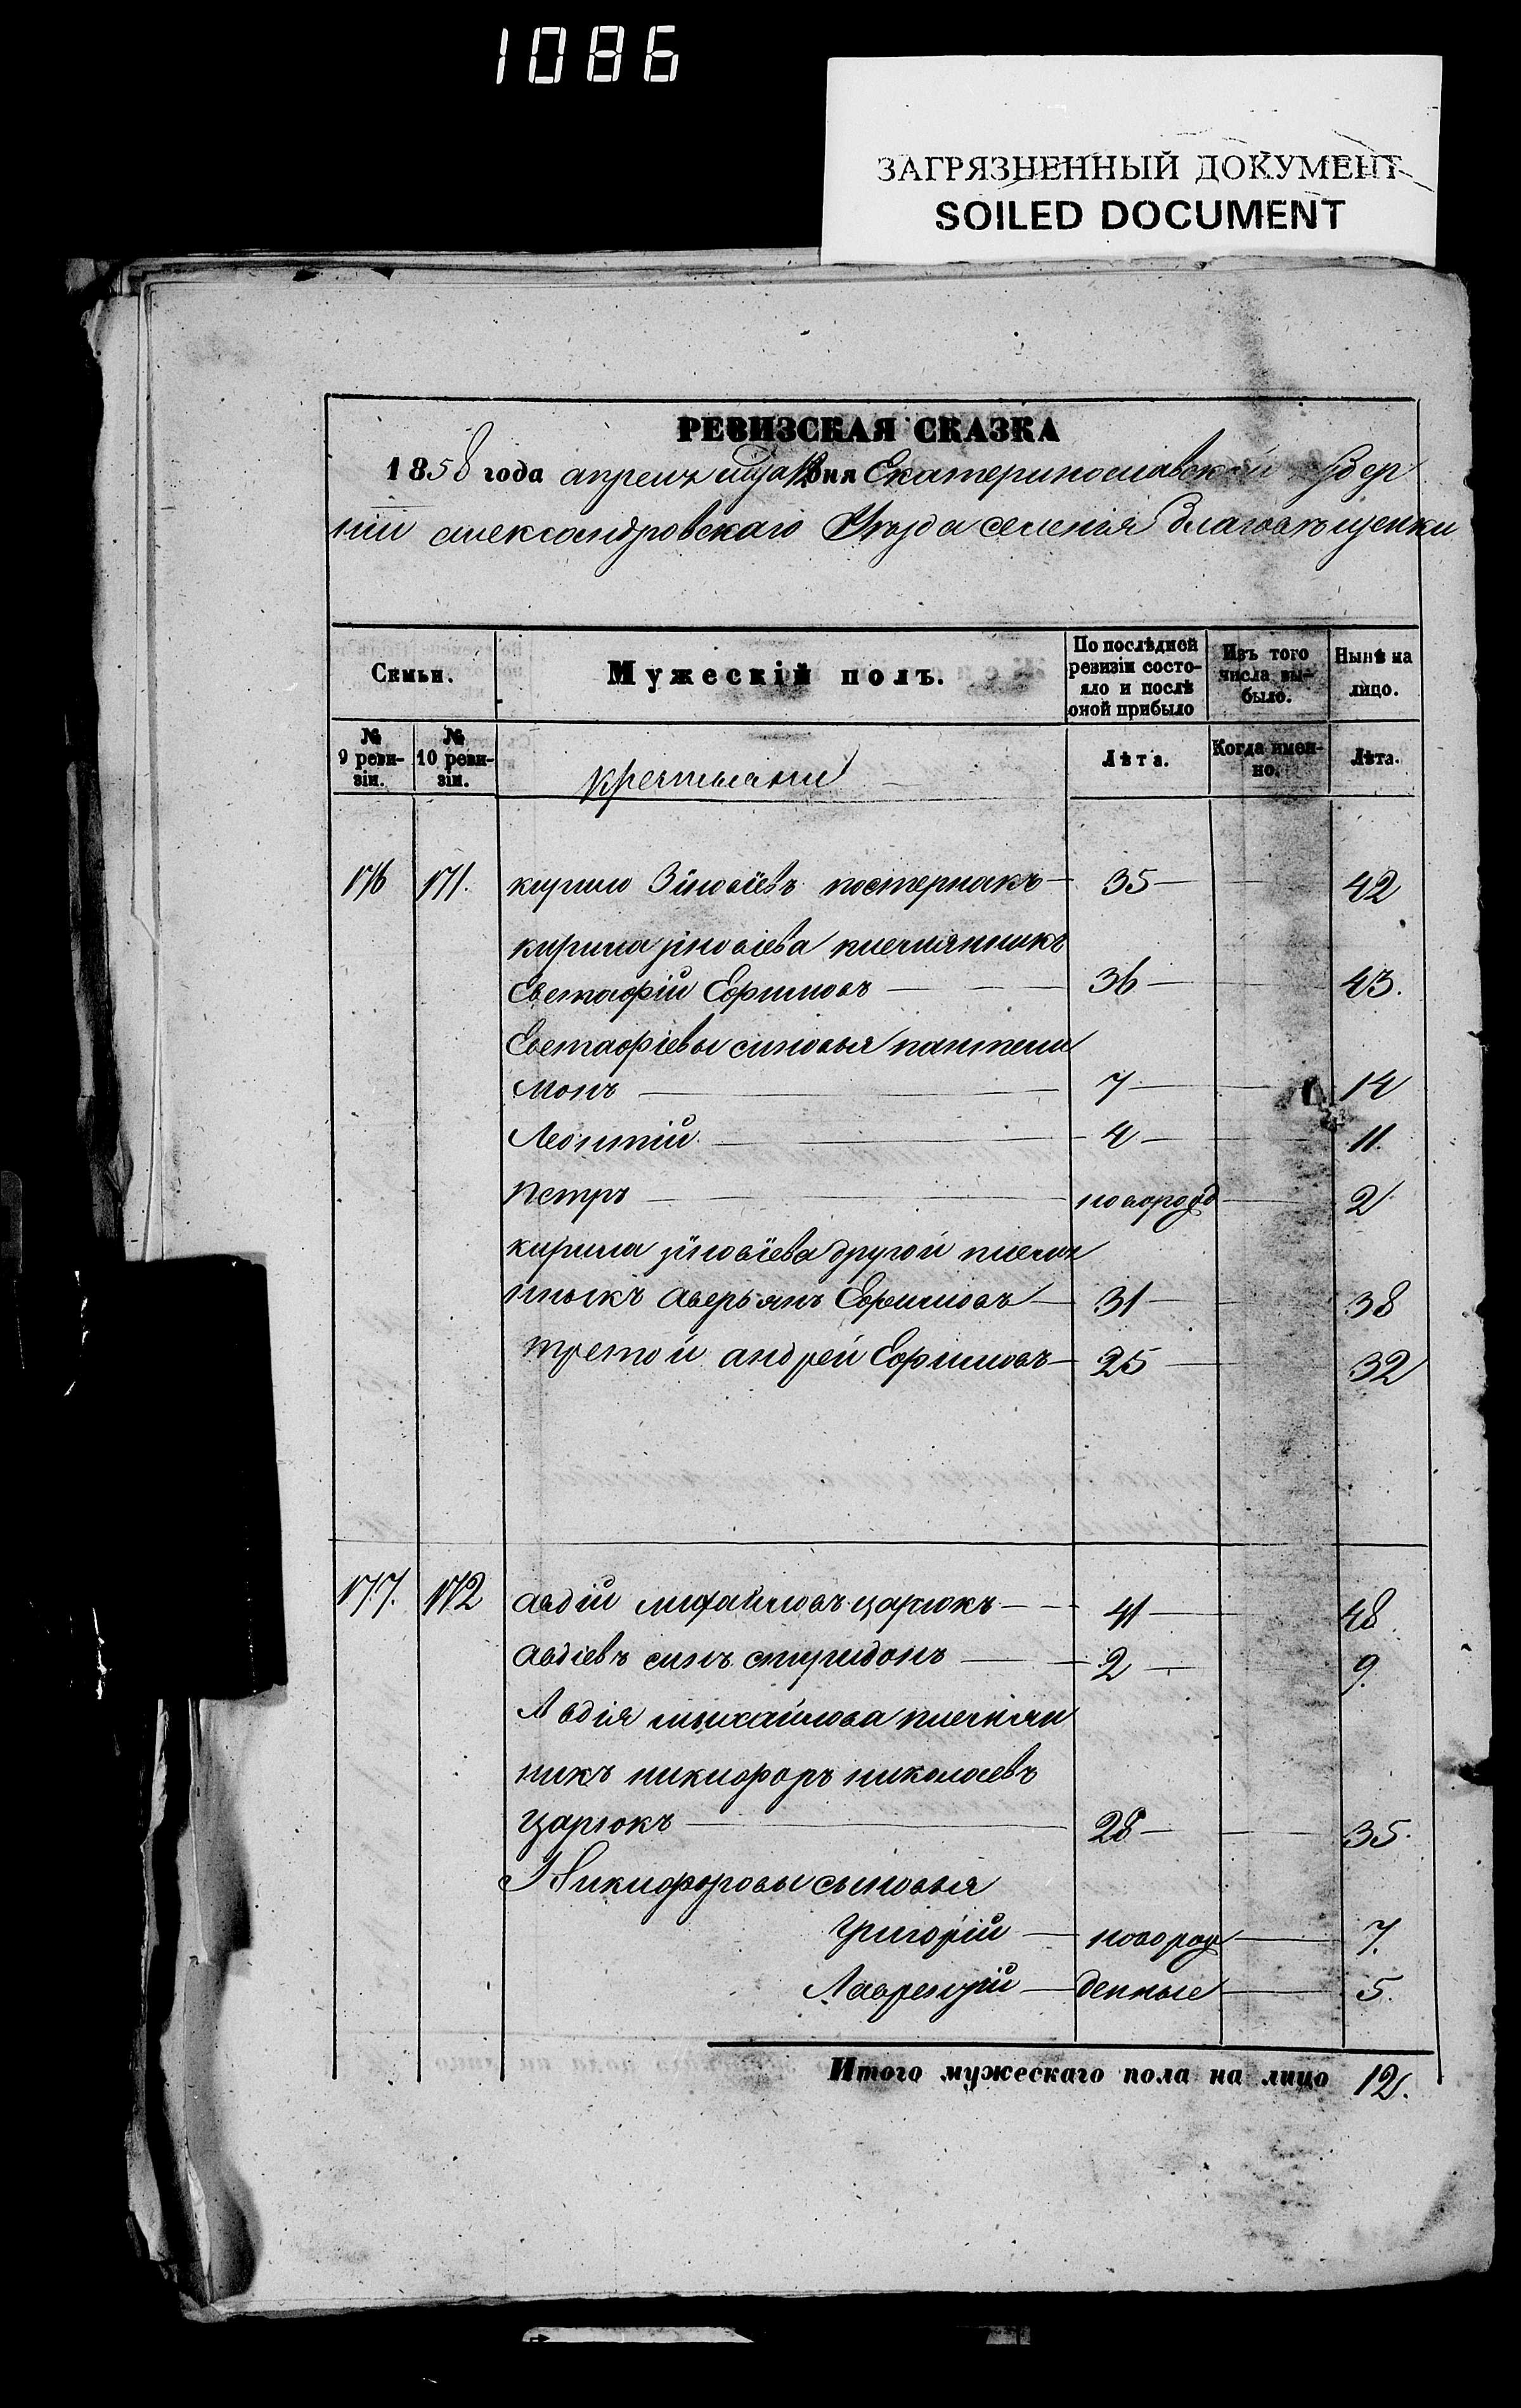 1086
ЗАГРЯЗНЕННЫЙ ДОКУМЕНТ
SOILED DOCUMENT
РЕВИЗСКАЯ СКАЗКА
1858 года апреля мца 12 дня Екатеринославской Губер
ніи александровскаго Уѣзда селенія Благовѣщенки
Семьи.
Мужескій полъ.
По послѣдней ревизіи состояло и послѣ оной прибыло
Изъ того числа выбыло.
Нынѣ на лицо.
№ 9 ревизіи.
№ 10 ревизіи.
крестьяни
Лѣта.
Когда именно.
Лѣта.
176 171. кирило Зіновіевъ постернакъ 35 42
кирила зіновіева племянникъ
Евстафій Ефимовъ 36 43.
Евстафіевы синовья пантели
монъ 7 14
Леонтій 4 11.
Петръ новорожд 2
кирила зіновіева другой племя
нныкъ аверьянъ Ефимовъ 31 38
третой андрей Ефимовъ 25 32
177. 172 авдій михайловъ царюкъ 41 48.
авдіевъ синъ спиридонъ 2 9.
Авдія мыхайлова племян
никъ никифоръ николаевъ
царюкъ 28 35.
Никифоровы сыновья
Григорій новорож 7.
Лаврентій денные 5.
Итого мужескаго пола на лицо 12.